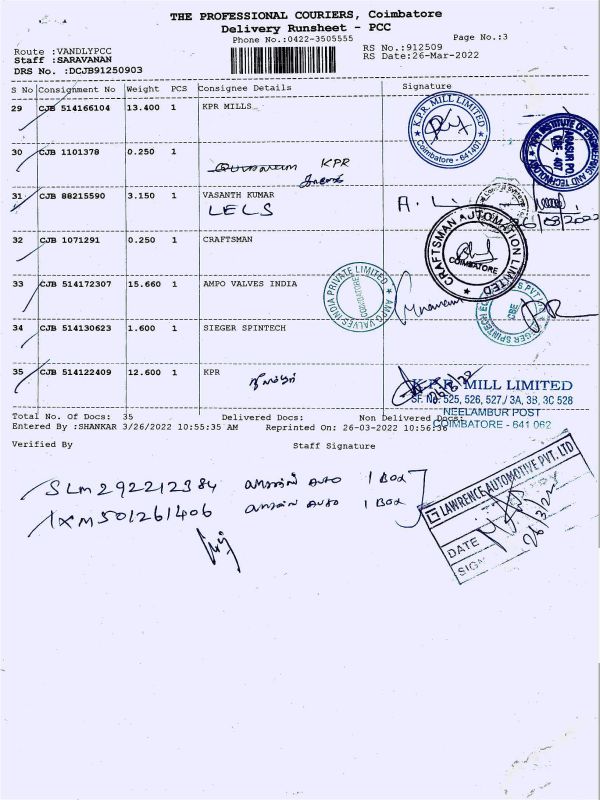 THE PROFESSIONAL COURIERS, Coimbatore
Delivery Runsheet - PCC
Phone No.:0422-3505555
Page No.:3
Route :VANDLYPCC
Staff :SARAVANAN
DRS No. :DCJB91250903
RS No.:912509
RS Date:26-Mar-2022
S No Consignment No Weight PCS Consignee Details Signature
29 CJB 514166104 13.400 1 KPR MILLS
K.P.R. MILL LIMITED
Coimbatore - 641407
30 CJB 1101378 0.250 1
KPR
INSTITUTE OF ENGINEERING AND TECHNOLOGY
31 CJB 88215590 3.150 1 VASANTH KUMAR
LELS
26/03/2022
32 CJB 1071291 0.250 1 CRAFTSMAN
CRAFTSMAN AUTOMATION LIMITED
COIMBATORE
33 CJB 514172307 15.660 1 AMPO VALVES INDIA
AMPO VALVES INDIA PRIVATE LIMITED
COIMBATORE
34 CJB 514130623 1.600 1 SIEGER SPINTECH
35 CJB 514122409 12.600 1 KPR
K.P.R. MILL LIMITED
SF. No. 525, 526, 527 / 3A, 3B, 3C 528
NEELAMBUR POST
COIMBATORE - 641 062
Total No. Of Docs: 35 Delivered Docs: Non Delivered Docs:
Entered By :SHANKAR 3/26/2022 10:55:35 AM Reprinted On: 26-03-2022 10:56:36
Verified By Staff Signature
SLM292212384 லாரன்ஸ் AUTO 1 BOX
IXM501261406 லாரன்ஸ் AUTO 1 BOX
LAWRENCE AUTOMOTIVE PVT. LTD
DATE 26/3/22
SIGN